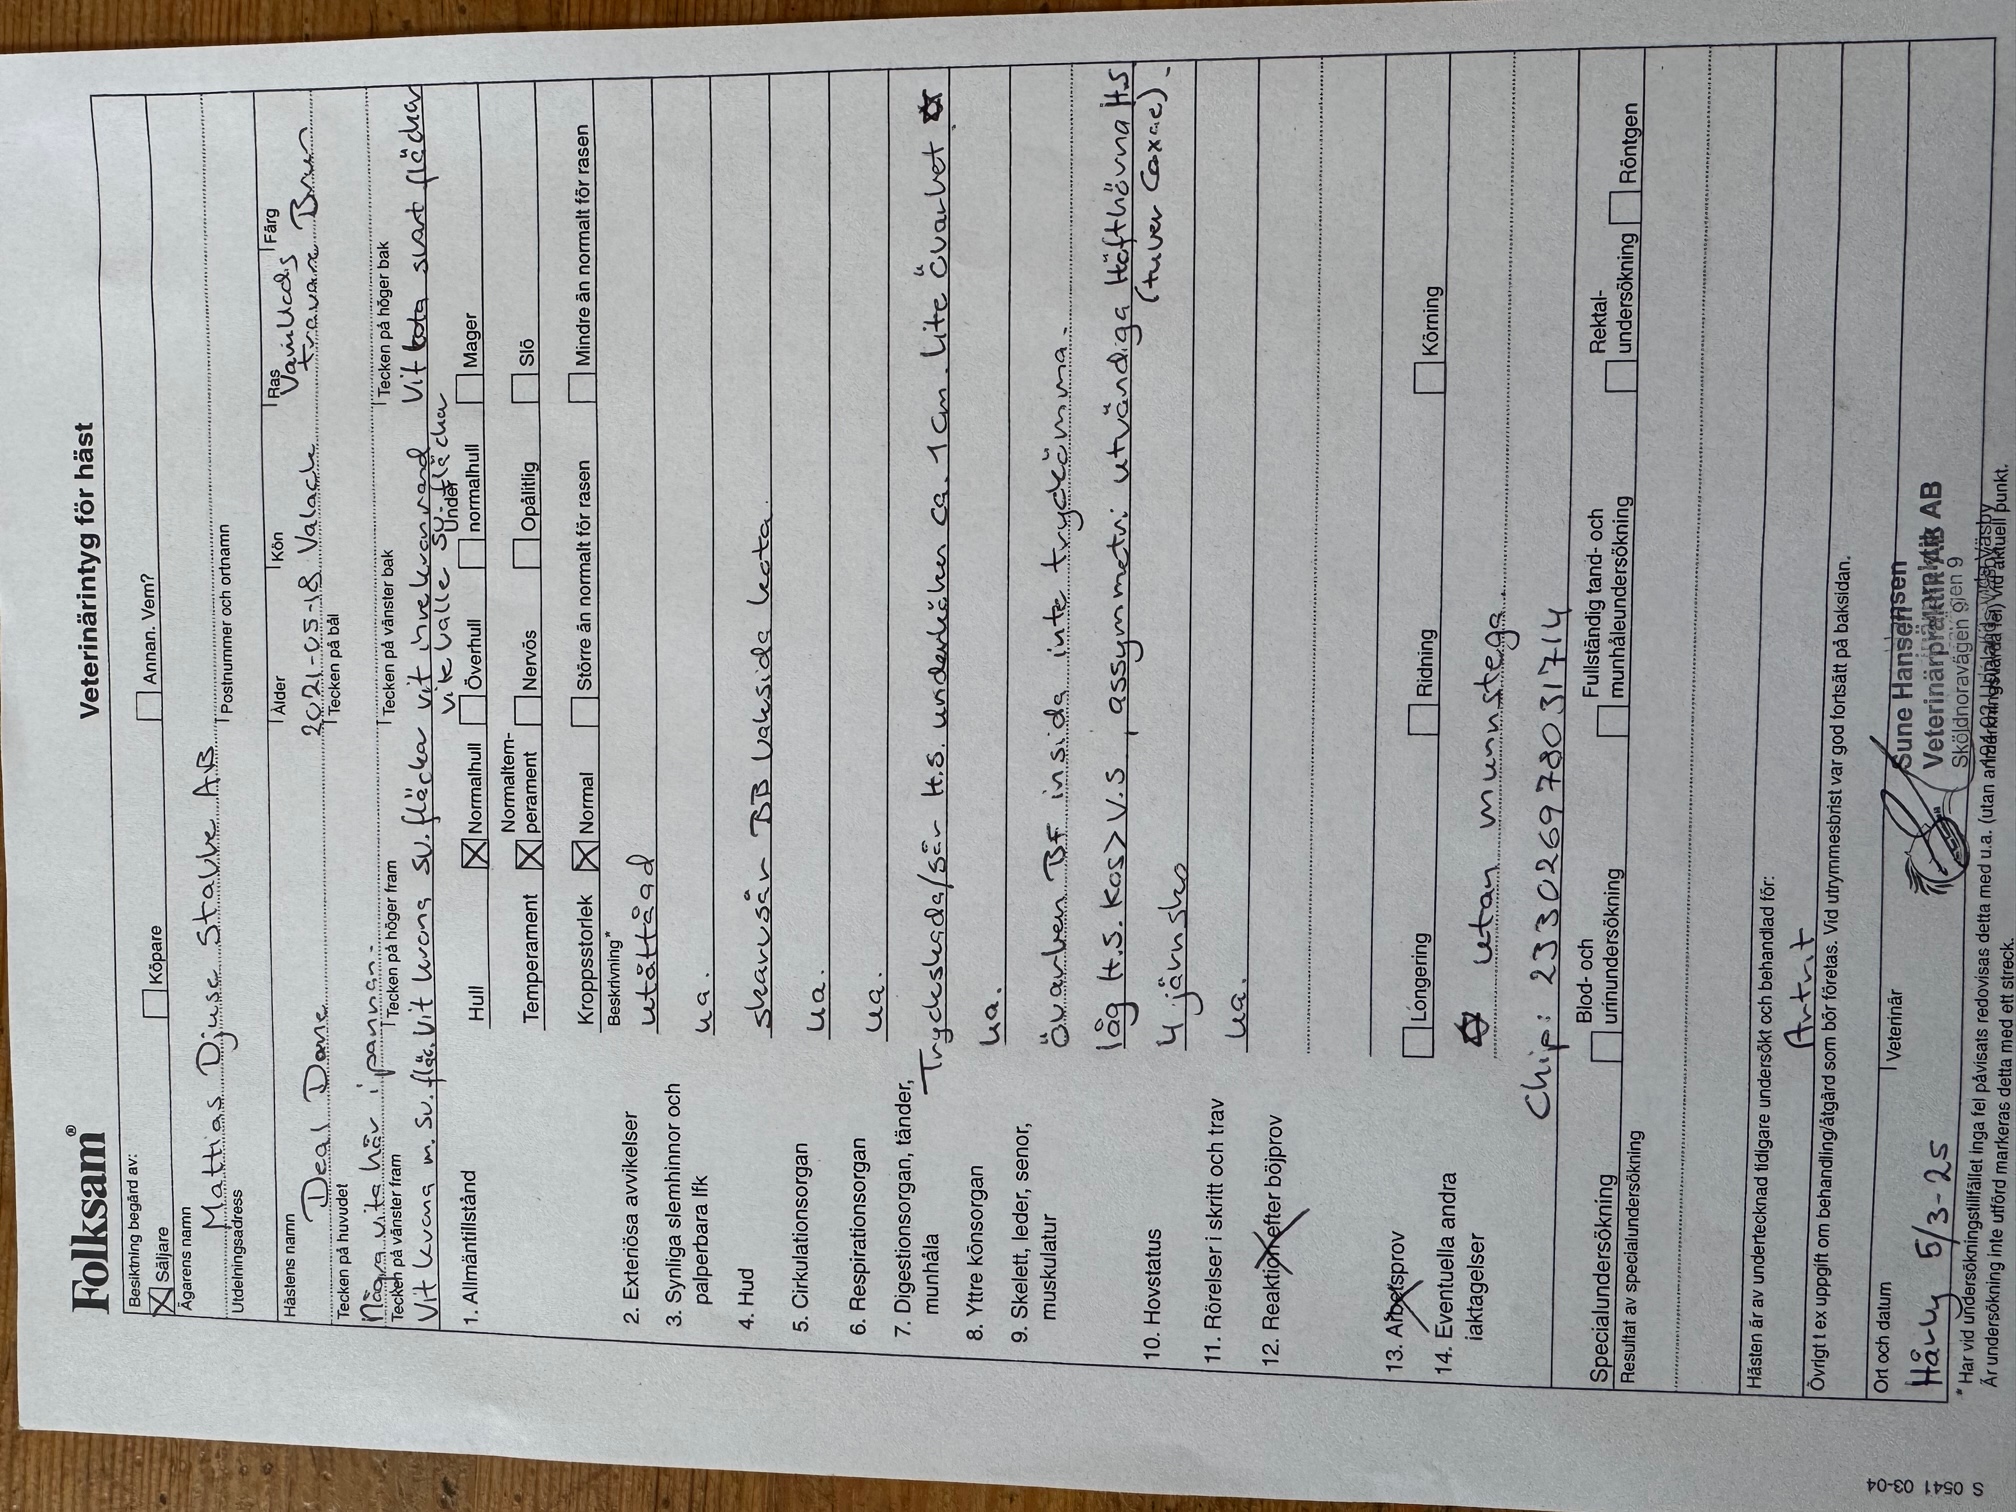 Folksam®
Veterinärintyg för häst
Besiktning begärd av:
☒ Säljare ☐ Köpare ☐ Annan. Vem?
Ägarens namn
Mattias Djuse Stable AB
Utdelningsadress Postnummer och ortnamn
Hästens namn Ålder Kön Ras Färg
Deal Done 2021-05-18 Valack Varmblods travare Brun
Tecken på huvudet Tecken på bål
Några vita hår i pannan.
Tecken på vänster fram Tecken på höger fram Tecken på vänster bak Tecken på höger bak
Vit krona m. sv. fläc. Vit krona sv. fläckar vit inre kronrand Vit kota svart fläckar
vite balle sv. fläckar
1. Allmäntillstånd Hull ☒ Normalhull ☐ Överhull ☐ Under normalhull ☐ Mager
Temperament ☒ Normaltem-perament ☐ Nervös ☐ Opålitlig ☐ Slö
Kroppsstorlek ☒ Normal ☐ Större än normalt för rasen ☐ Mindre än normalt för rasen
Beskrivning*
2. Exteriösa avvikelser utåttåad
3. Synliga slemhinnor och
palperbara lfk ua.
4. Hud skavsår BB baksida kota
5. Cirkulationsorgan ua.
6. Respirationsorgan ua.
7. Digestionsorgan, tänder,
munhåla Tryckskada/sår H.S. underkäken ca. 1cm. Lite överbet ✡
8. Yttre könsorgan ua.
9. Skelett, leder, senor,
muskulatur Överben BF insida inte tryckömma.
låg H.S. Kos > V.S, assymmetri utvändiga Höfthörna H.S
(tuber coxae).
10. Hovstatus 4 järnsko
11. Rörelser i skritt och trav ua.
12. Reaktion efter böjprov
13. Arbetsprov ☐ Longering ☐ Ridning ☐ Körning
14. Eventuella andra
iakttagelser ✡ utan munstega
Chip: 233026978031714
Specialundersökning ☐ Blod- och urinundersökning ☐ Fullständig tand- och munhåleundersökning ☐ Rektal-undersökning ☐ Röntgen
Resultat av specialundersökning
Hästen är av undertecknad tidigare undersökt och behandlad för:
Artrit
Övrigt t ex uppgift om behandling/åtgärd som bör företas. Vid utrymmesbrist var god fortsätt på baksidan.
Ort och datum Veterinär
Håby 5/3-25
Sune Hansen
Veterinärpraktik AB
Sköldnoravägen 9
* Har vid undersökningstillfället inga fel påvisats redovisas detta med u.a. (utan anmärkningsvärda fel) vid aktuell punkt.
Är undersökning inte utförd markeras detta med ett streck.
S 0541 03-04